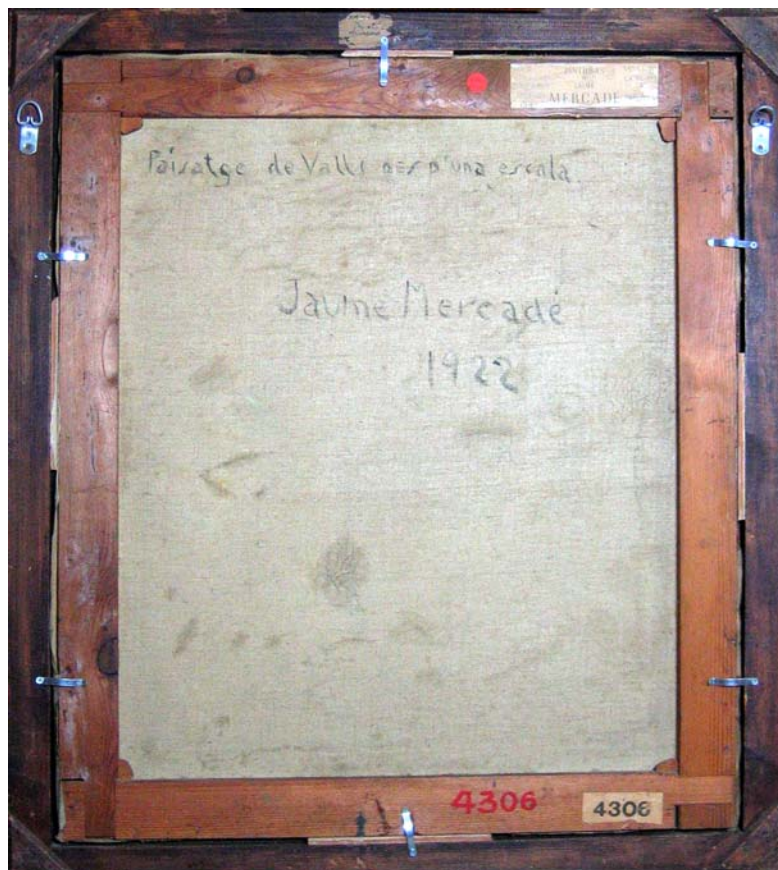 MERCADE
Paisatge de Valls des d'una escala
Jaume Mercadé
1922
4306
4306